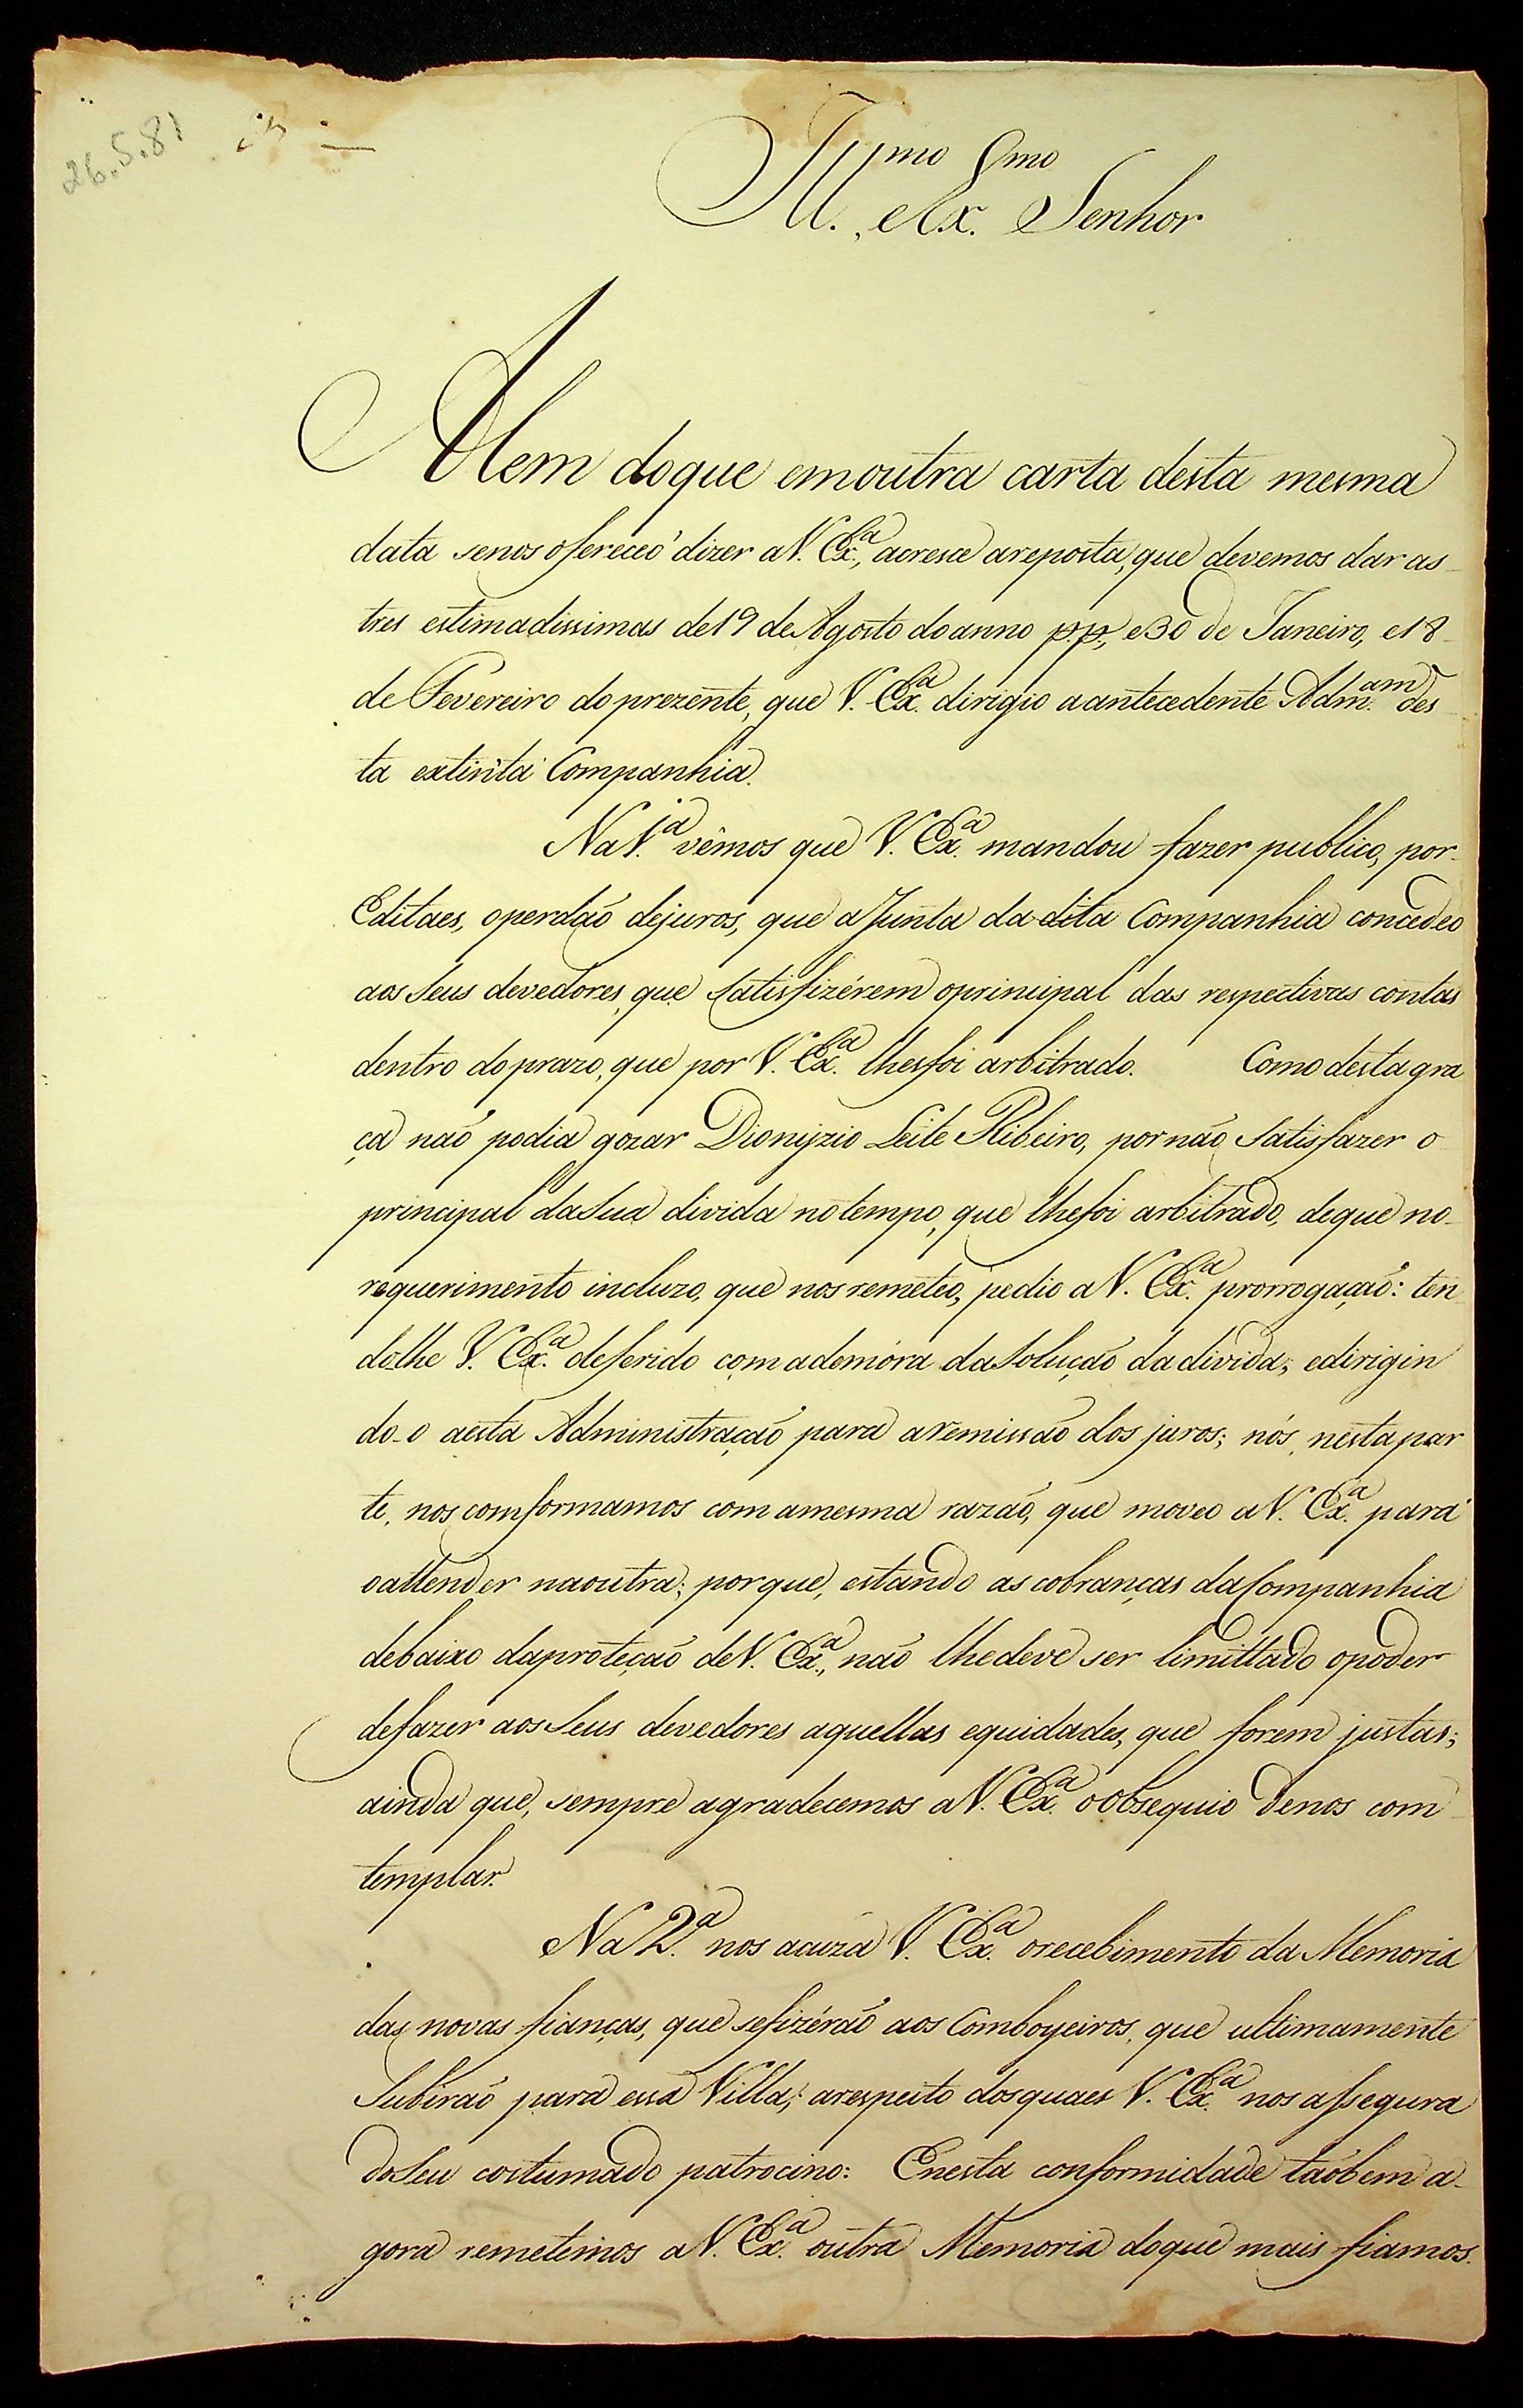 26.5.81
Ill.mo e Ex.mo Senhor
Alem do que em outra carta desta mesma
data se nos ofereceo dizer a V. Ex.a, acresce a reposta, que devemos dar as
tres estimadissimas de 19 de Agosto do anno p.p., e 30 de Janeiro, e 18
de Fevereiro do prezente, que V. Ex.a dirigio a antecedente Adm.am des
ta extinta Companhia.
Na 1.a vêmos que V. Ex.a mandou fazer publico, por
Editaes, o perdaõ de juros, que a Junta da dita Companhia concedeo
aos Seus devedores, que Satisfizérem o principal das respectivas contas
dentro do prazo, que por V. Ex.a lhes foi arbitrado. Como desta gra
ça naõ podia gozar Dionyzio Leite Ribeiro, por naõ Satisfazer o
principal da Sua divida no tempo, que lhe foi arbitrado, de que no
requerimento incluzo, que nos remeteo, pedio a V. Ex.a prorrogaçaõ: ten
dolhe V. Ex.a deferido com a demóra da Soluçaõ da divida; e dirigin
do-o a esta Administraçaõ para a remissaõ dos juros; nós, nesta par
te, nos comformamos com a mesma razaõ, que moveo a V. Ex.a para
o attender na outra; porque, estando as cobranças da Companhia
debaixo da proteçaõ de V. Ex.a, naõ lhe deve ser limittado o poder
de fazer aos Seus devedores aquellas equidades, que forem justas;
ainda que, sempre agradecemos a V. Ex.a o Obsequio de nos com
templar.
Na 2.a nos acuza V. Ex.a o recebimento da Memoria
das novas fianças, que se fizéraõ aos Comboyeiros, que ultimamente
Subiraõ para essa Villa; a respeito dos quaes V. Ex.a nos assegura
do Seu costumado patrocino: E nesta conformidade taõbem a-
gora remetimos a V. Ex.a outra Memoria do que mais fiamos.